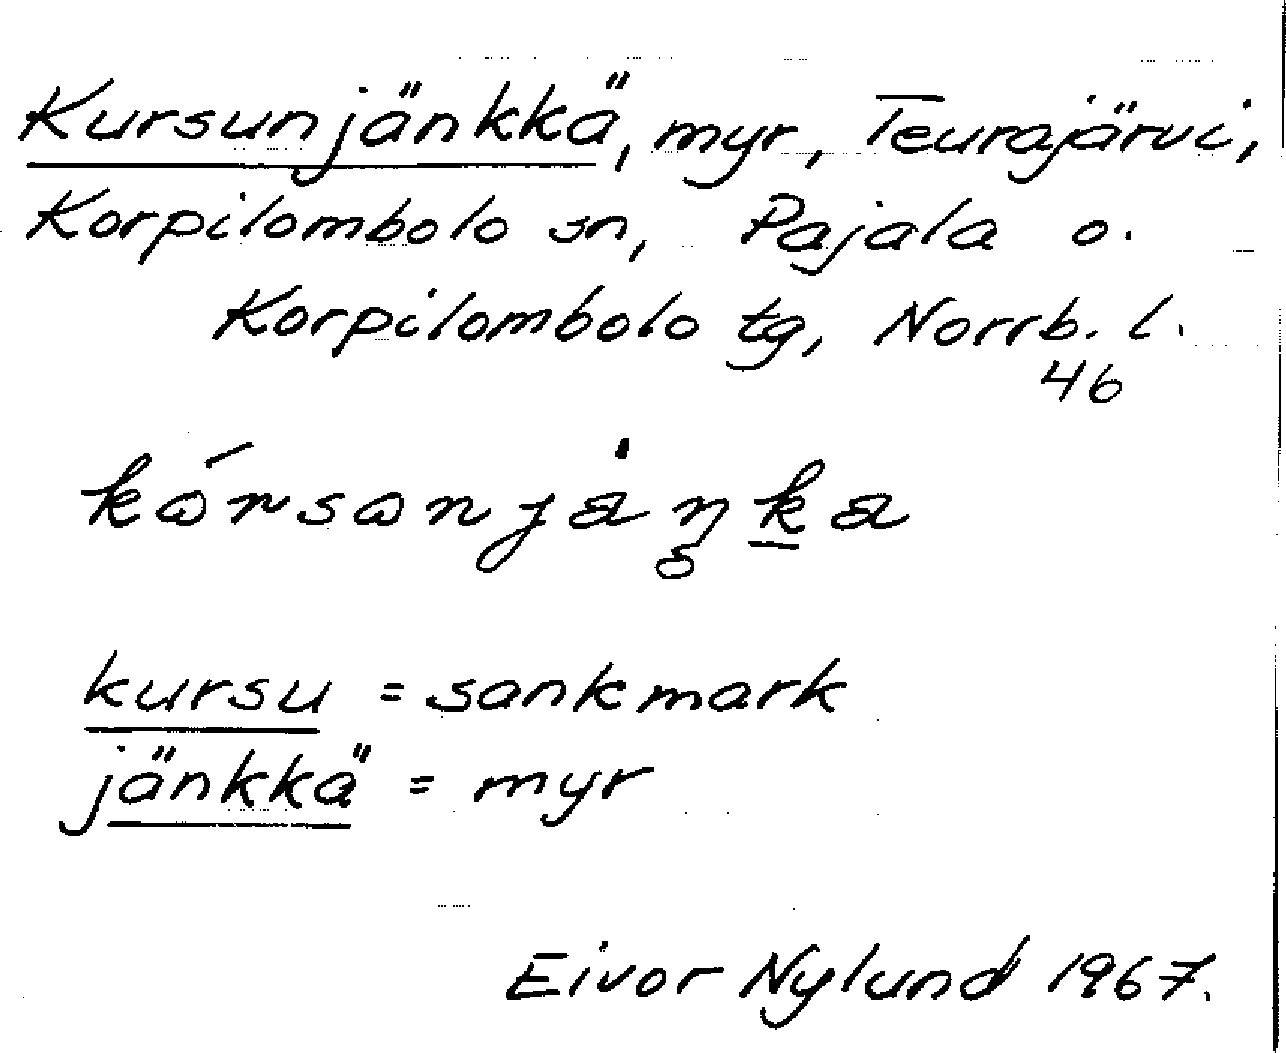 Kursunjänkkä, myr, Teurajärvi,
Korpilombolo sn, Pajala o.
Korpilombolo tg, Norrb. l.
46
kursu = sankmark
jänkkä = myr
Eivor Nylund 1967.